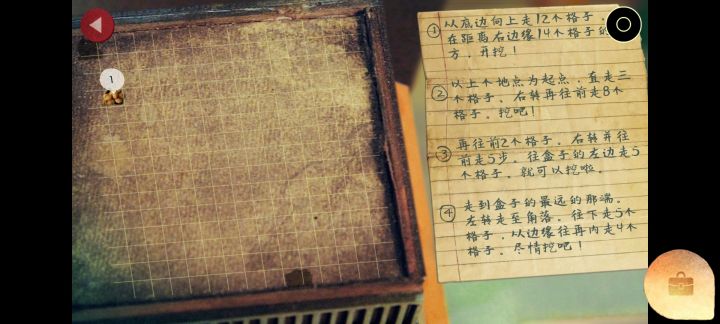 1
① 从底边向上走12个格子，
在距离右边缘14个格子的
方，开挖！
② 以上个地点为起点，直走三
个格子，右转再往前走8个
格子，挖吧！
③ 再往前2个格子，右转并往
前走5步，往盒子的左边走5
个格子，就可以挖啦。
④ 走到盒子的最远的那端，
左转走至角落，往下走5个
格子，从边缘往再内走4个
格子，尽情挖吧！